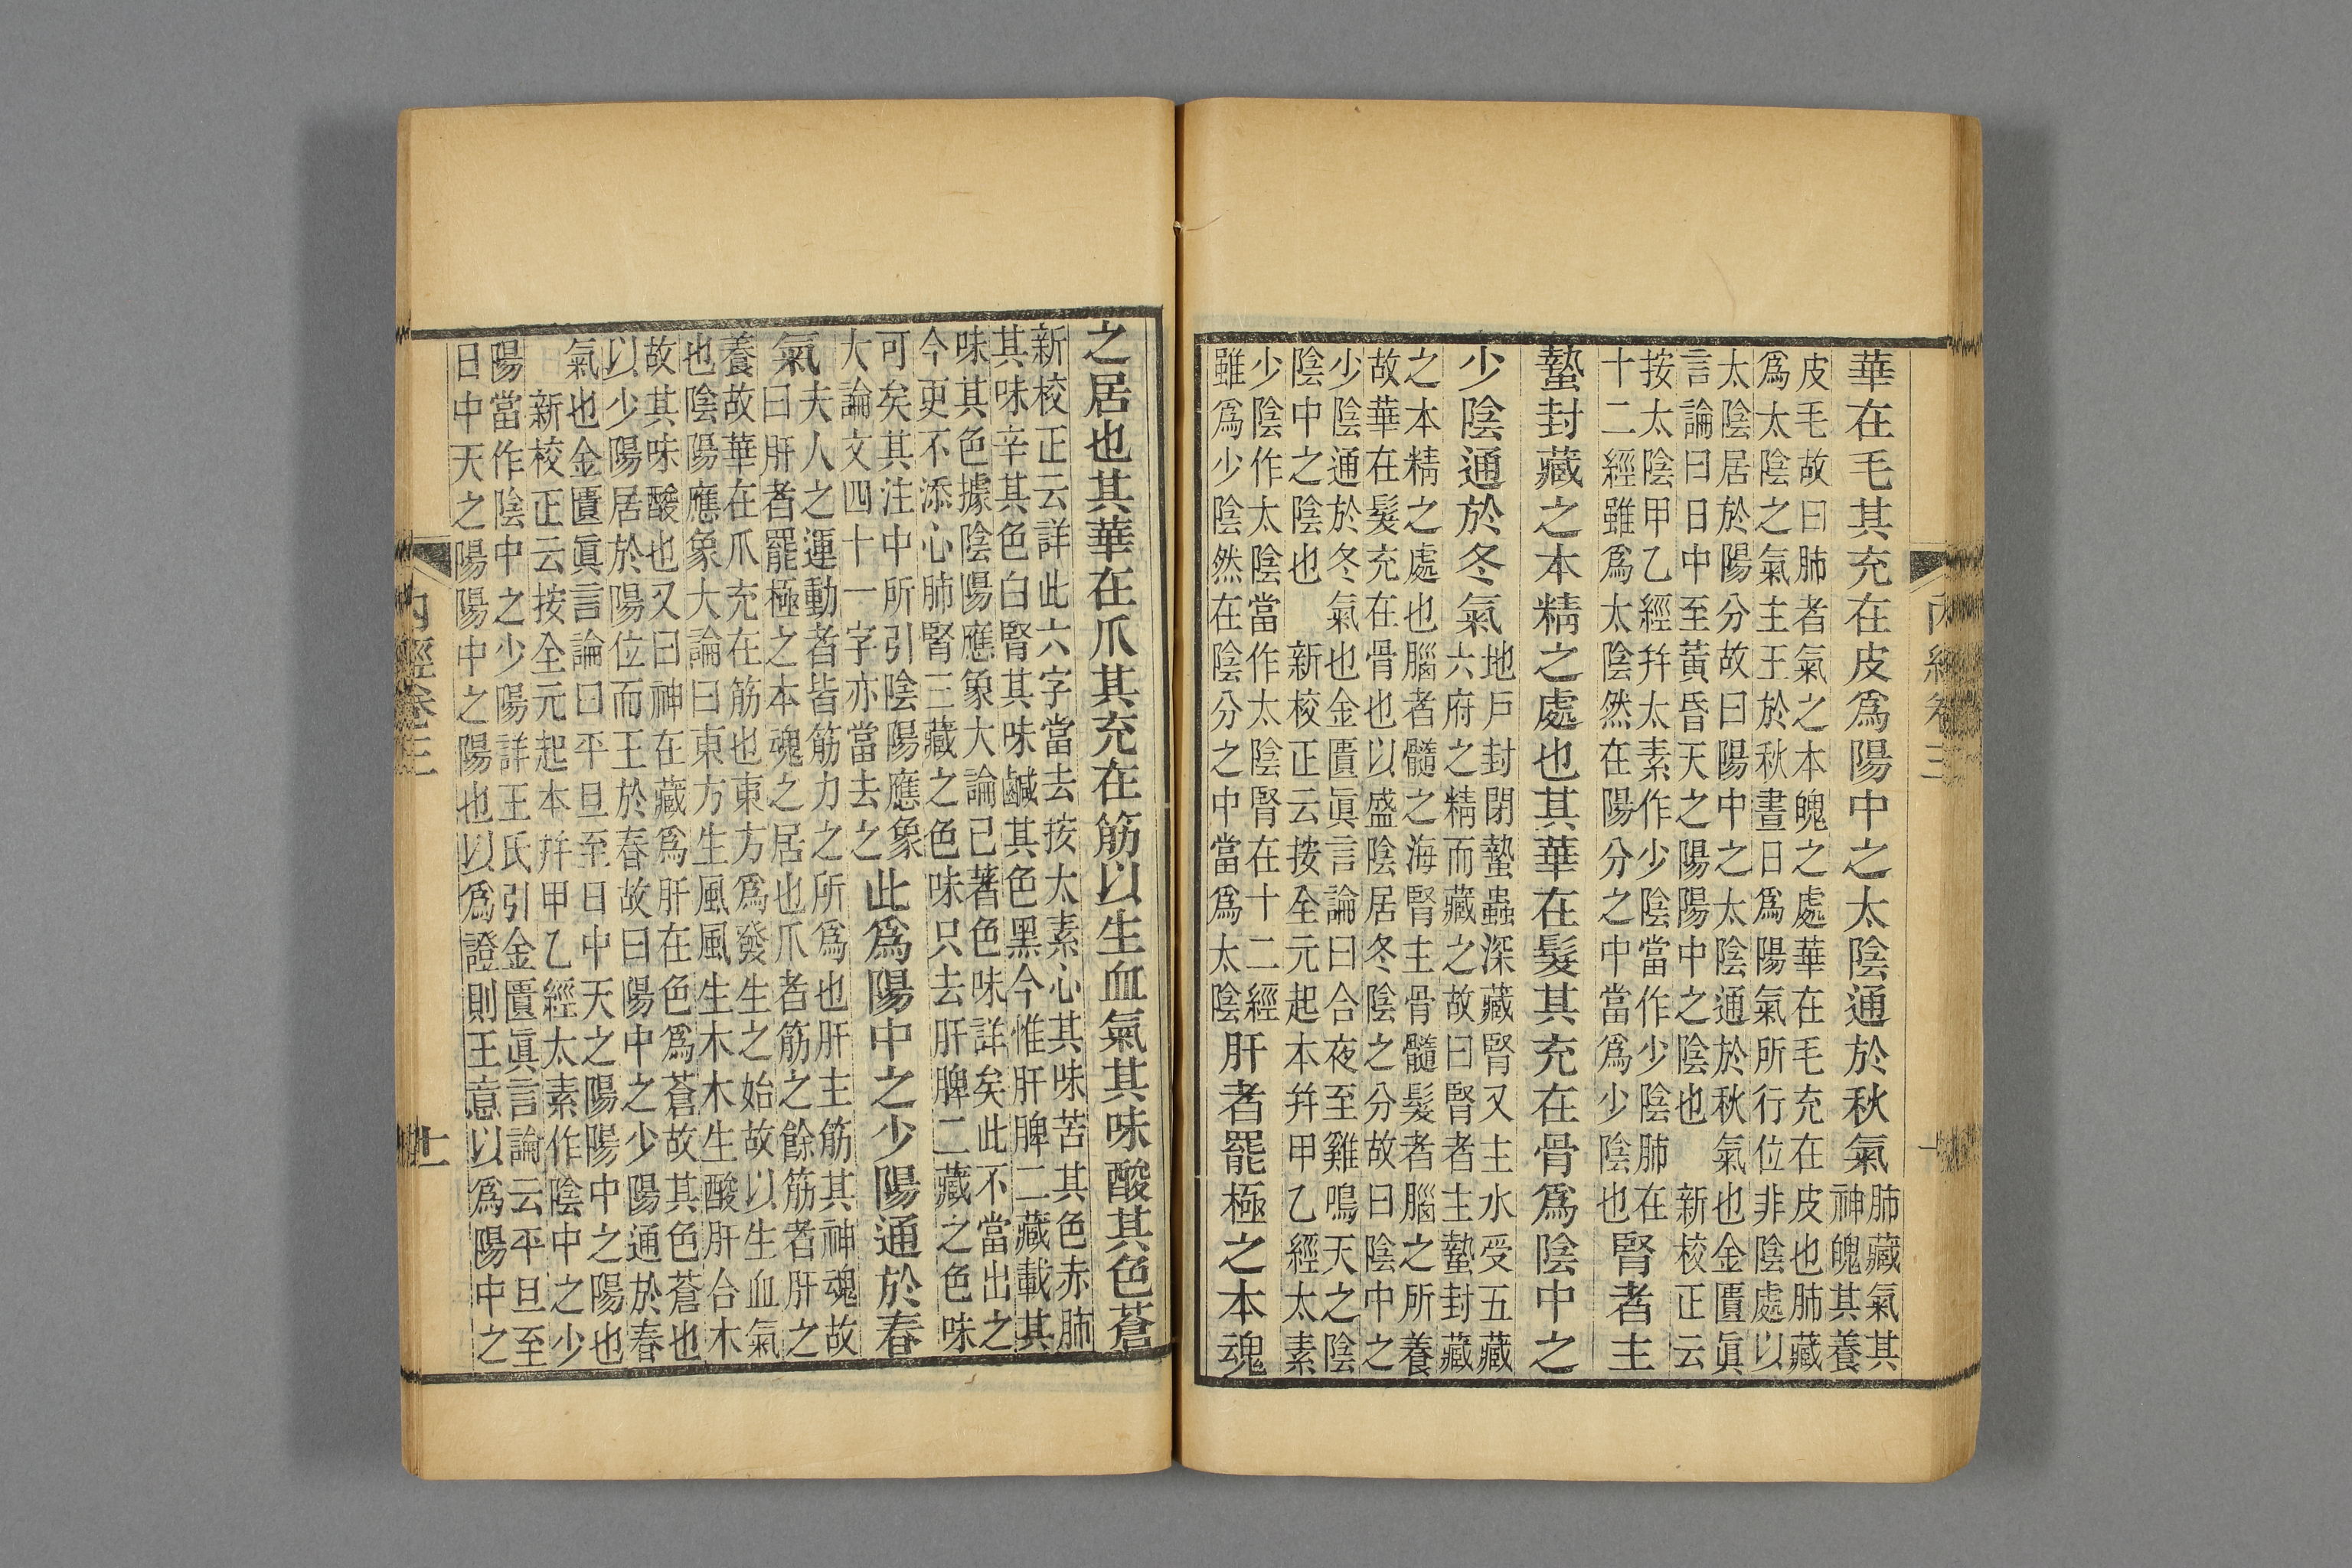 華在毛其充在皮爲陽中之太陰通於秋氣
肺藏氣其
神魄其養
皮毛故曰肺者氣之本魄之處華在毛充在皮也肺藏
爲太陰之氣主王於秋晝日爲陽氣所行位非陰處以
太陰居於陽分故曰陽中之太陰通於秋氣也金匱眞
言論曰日中至黃昏天之陽陽中之陰也 新校正云
按太陰甲乙經幷太素作少陰當作少陰肺在
十二經雖爲太陰然在陽分之中當爲少陰也
腎者主
蟄封藏之本精之處也其華在髮其充在骨爲陰中之
少陰通於冬氣
地戶封閉蟄蟲深藏腎又主水受五藏
六府之精而藏之故曰腎者主蟄封藏
之本精之處也腦者髓之海腎主骨髓髮者腦之所養
故華在髮充在骨也以盛陰居冬陰之分故曰陰中之
少陰通於冬氣也金匱眞言論曰合夜至雞鳴天之陰
陰中之陰也 新校正云按全元起本幷甲乙經太素
少陰作太陰當作太陰腎在十二經
雖爲少陰然在陰分之中當爲太陰
肝者罷極之本魂
之居也其華在爪其充在筋以生血氣其味酸其色蒼
新校正云詳此六字當去按太素心其味苦其色赤肺
其味辛其色白腎其味鹹其色黑今惟肝脾二藏載其
味其色據陰陽應象大論已著色味詳矣此不當出之
今更不添心肺腎三藏之色味只去肝脾二藏之色味
可矣其注中所引陰陽應象
大論文四十一字亦當去之
此爲陽中之少陽通於春
氣
夫人之運動者皆筋力之所爲也肝主筋其神魂故
曰肝者罷極之本魂之居也爪者筋之餘筋者肝之
養故華在爪充在筋也東方爲發生之始故以生血氣
也陰陽應象大論曰東方生風風生木木生酸肝合木
故其味酸也又曰神在藏爲肝在色爲蒼故其色蒼也
以少陽居於陽位而王於春故曰陽中之少陽通於春
氣也金匱眞言論曰平旦至日中天之陽陽中之陽也
新校正云按全元起本幷甲乙經太素作陰中之少
陽當作陰中之少陽詳王氏引金匱眞言論云平旦至
日中天之陽陽中之陽也以爲證則王意以爲陽中之
內經卷三